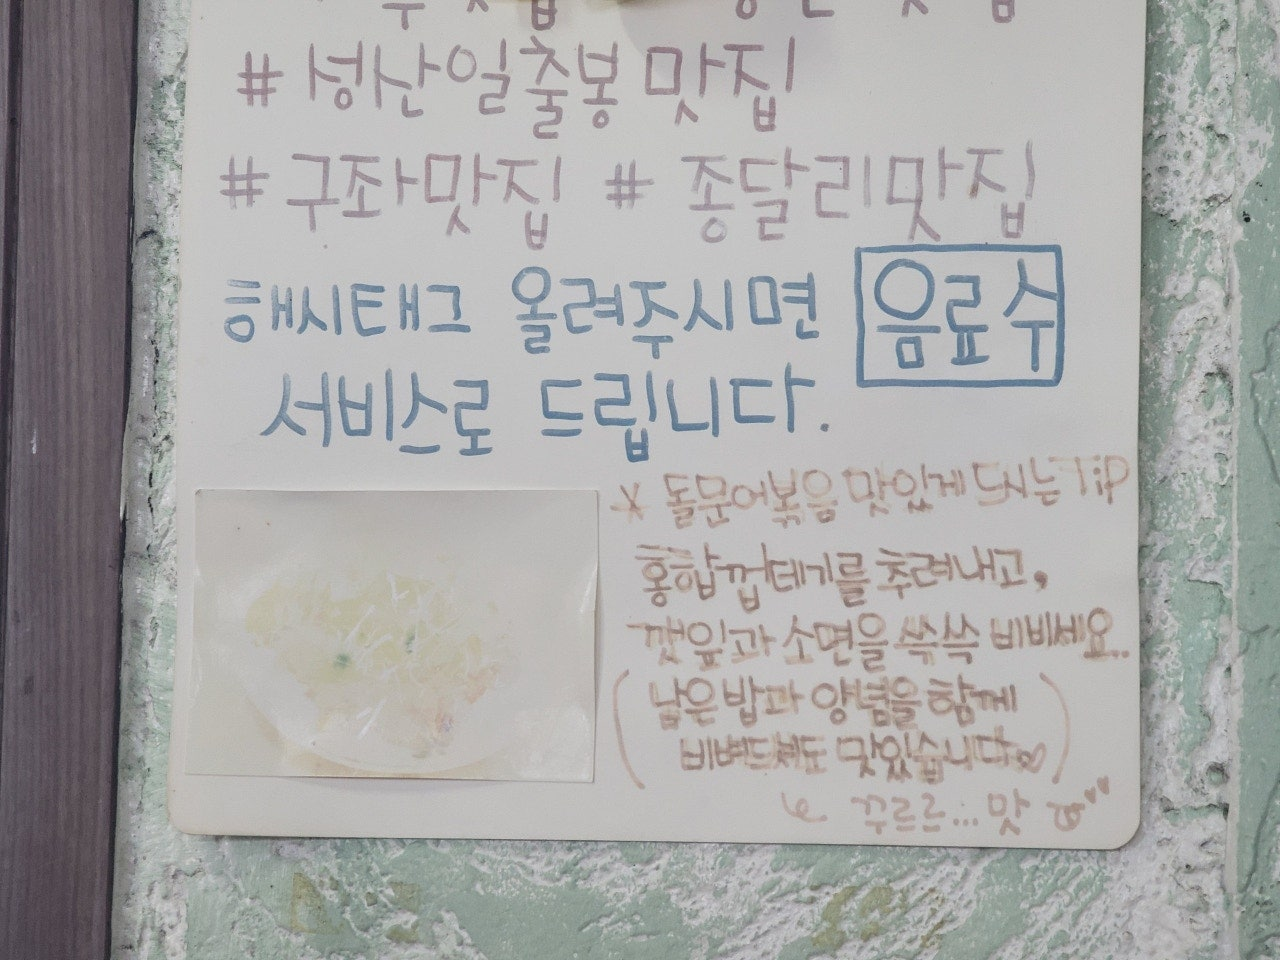 #성산일출봉 맛집
#구좌맛집 #종달리맛집
해시태그 올려주시면 음료수
서비스로 드립니다.
* 돌문어볶음 맛있게 드시는 Tip
홍합껍데기를 추려내고,
깻잎과 소면을 쓱쓱 비비세요..
(남은 밥과 양념을 함께
비벼드셔도 맛있습니다)
꾸르르...맛